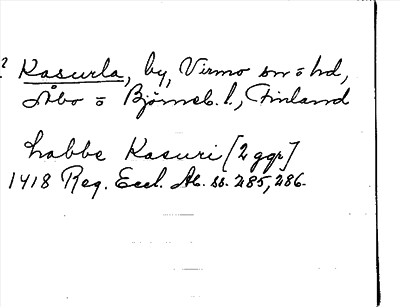 ? Kasurla, by, Virmo sn o hd,
Åbo o Björneb. l., Finland
Labbe Kasuri [2 ggr]
1418 Reg. Eccl. Ab. ss. 285, 286.